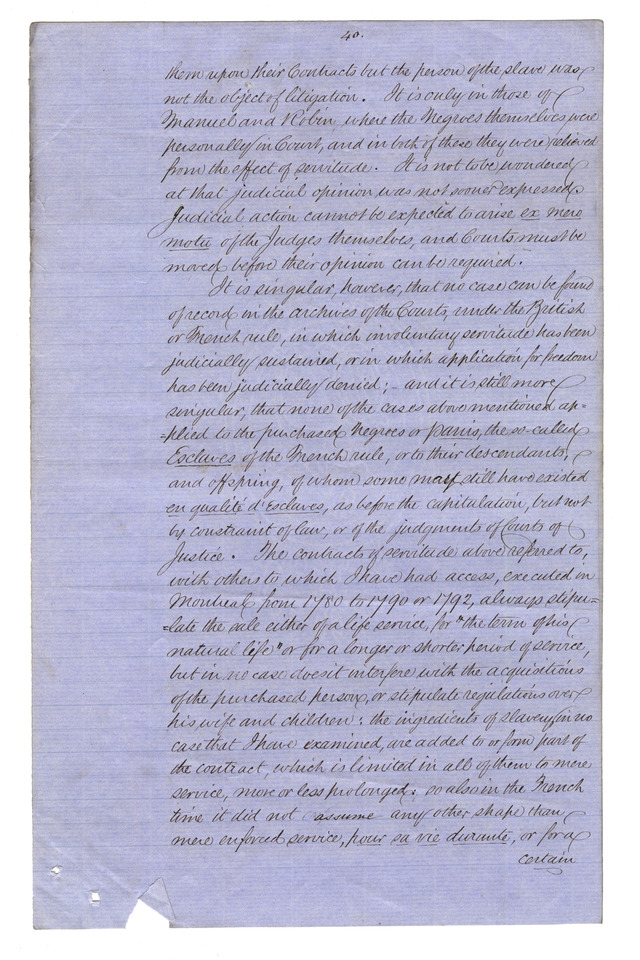 40.
them upon their Contracts but the person of the slave was
not the object of litigation. It is only in those of
Manuel and Robin, where the Negroes themselves were
personally in Court, and in both of these they were relieved
from the effect of servitude. It is not to be wondered
at that judicial opinion was not sooner expressed.
Judicial action cannot be expected to arise ex mero
motu of the Judges themselves, and Courts must be
moved before their opinion can be required.
It is singular, however, that no case can be found
of record in the archives of the Courts, under the British
or French rule, in which involuntary servitude has been
judicially sustained, or in which application for freedom
has been judicially denied; - and it is still more
singular, that none of the cases above mentioned ap-
=plied to the purchased Negroes or Panis, the so-called
Esclaves of the French rule, or to their descendants,
and offspring, of whom some may still have existed
en qualité d'Esclaves, as before the capitulation, but not
by constraint of law, or of the judgments of Courts of
Justice. The contracts of servitude above referred to,
with others to which I have had access, executed in
Montreal from 1780 to 1790 or 1792, always stipu=
=late the sale either of a life service, for "the term of his
natural life" or for a longer or shorter period of service,
but in no case does it interfere with the acquisitions
of the purchased person, or stipulate regulations over
his wife and children: the ingredients of slavery in no
case that I have examined, are added to or form part of
the contract, which is limited in all of them to mere
service, more or less prolonged: so also in the French
time it did not assume any other shape than
mere enforced service, pour sa vie durante, or for a
certain